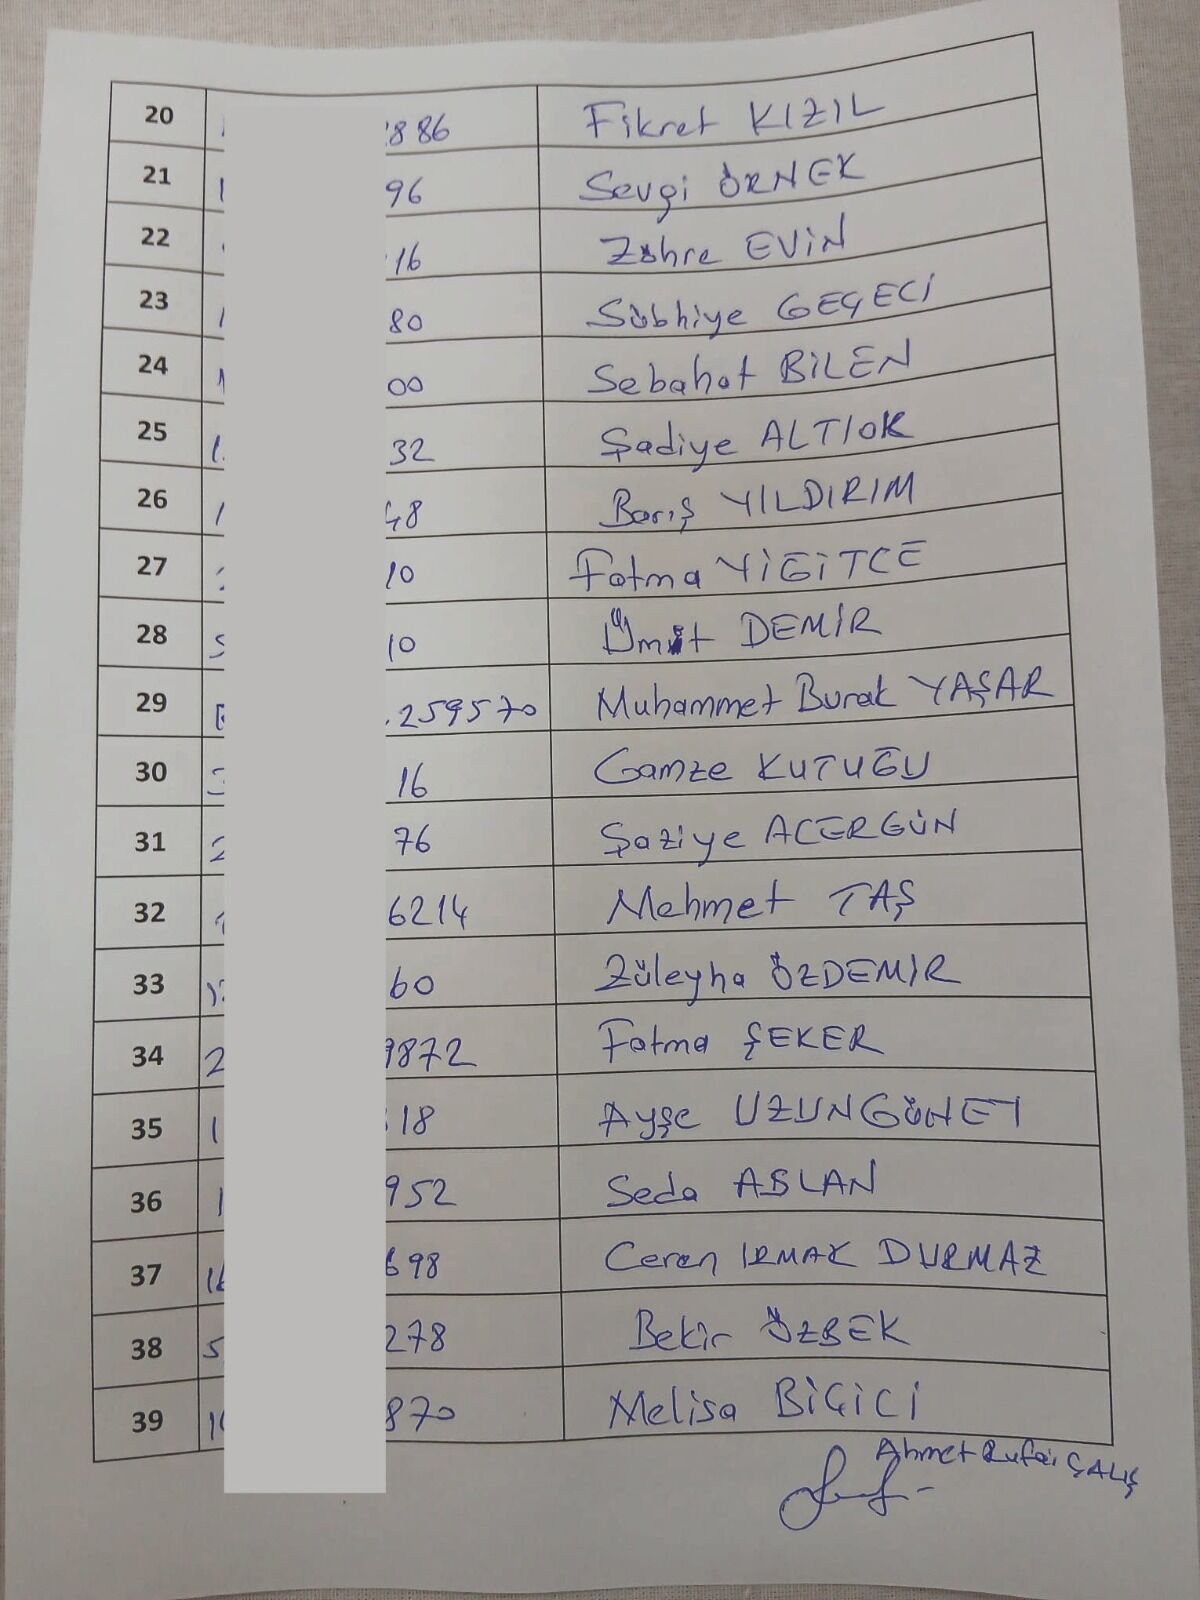 20 886 Fikret KIZIL
21 96 Sevgi ÖRNEK
22 16 Zöhre EVİN
23 80 Sübhiye GEÇECİ
24 00 Sebahat BİLEN
25 32 Şadiye ALTIOK
26 48 Barış YILDIRIM
27 10 Fatma YİĞİTCE
28 10 Ümit DEMİR
29 259570 Muhammet Burak YAŞAR
30 16 Gamze KUTUĞU
31 76 Şaziye ACERGÜN
32 6214 Mehmet TAŞ
33 60 Züleyha ÖZDEMİR
34 9872 Fatma ŞEKER
35 18 Ayşe UZUNGÜNEY
36 952 Seda ASLAN
37 698 Ceren IRMAK DURMAZ
38 278 Bekir ÖZBEK
39 870 Melisa BİÇİCİ
Ahmet Rufai ÇALIŞ